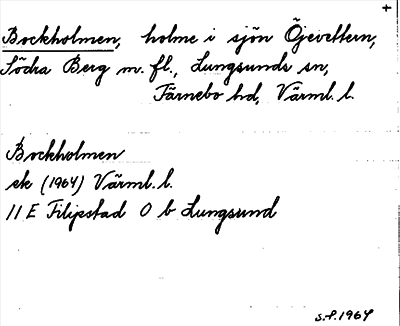 +
Bockholmen, holme i sjön Öjevettern,
Södra Berg m. fl., Lungsunds sn,
Färnebo hd, Värml. l.
Bockholmen
ek (1964) Värml. l.
11 E Filipstad 0 b Lungsund
S.f. 1964